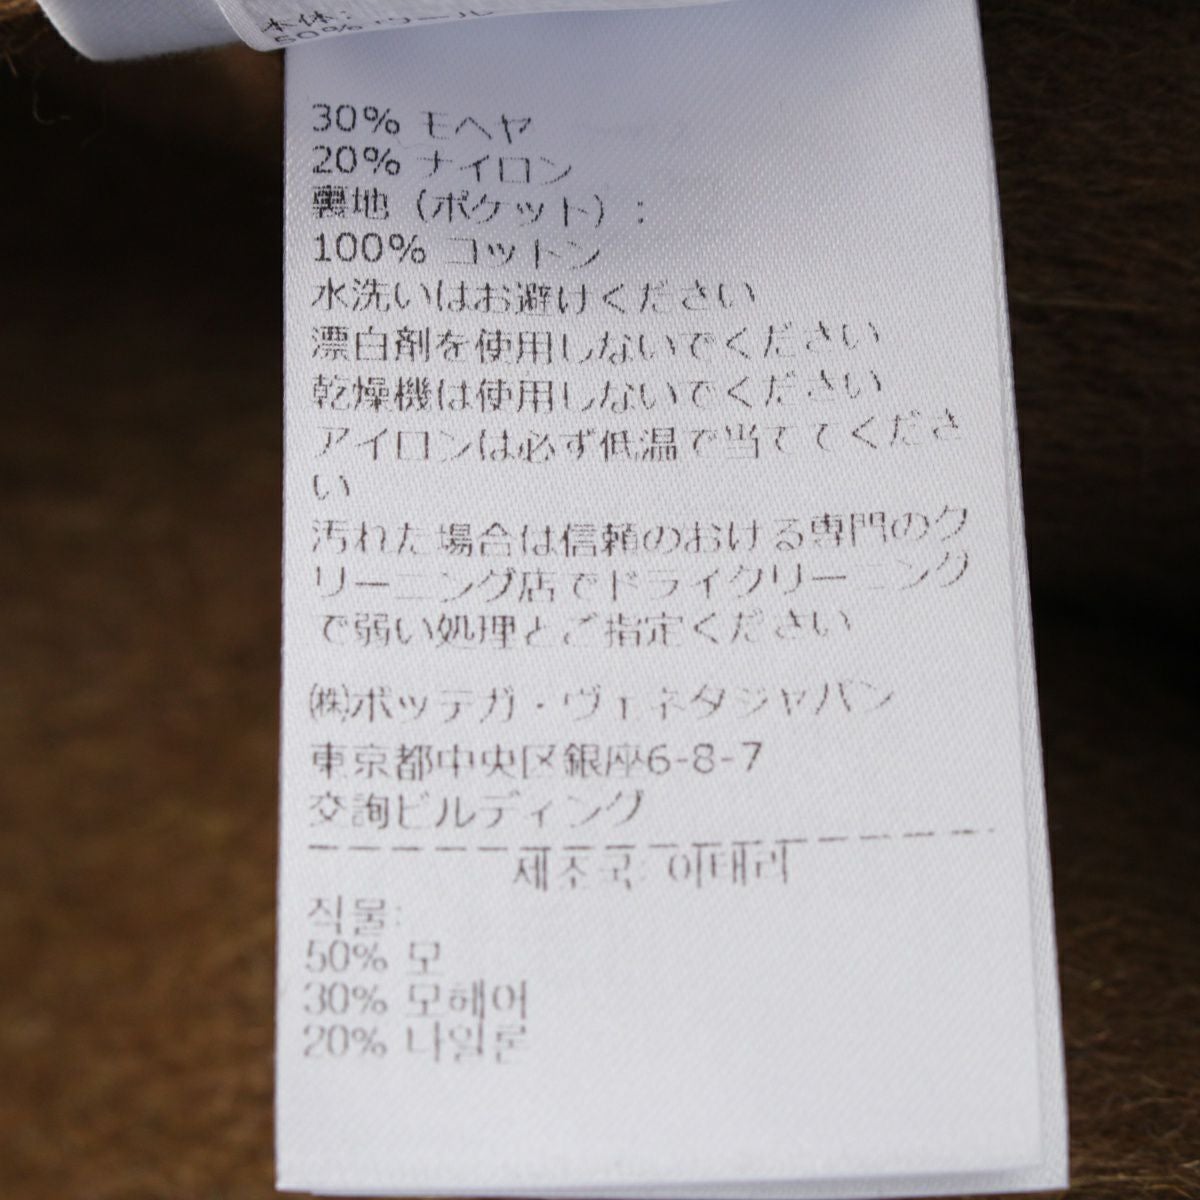 本体:
50% ウール
30% モヘヤ
20% ナイロン
裏地（ポケット）:
100% コットン
水洗いはお避けください
漂白剤を使用しないでください
乾燥機は使用しないでください
アイロンは必ず低温で当ててくださ
い
汚れた場合は信頼のおける専門のク
リーニング店でドライクリーニング
で弱い処理とご指定ください
㈱ボッテガ・ヴェネタジャパン
東京都中央区銀座6-8-7
交詢ビルディング
제조국: 이태리
직물:
50% 모
30% 모헤어
20% 나일론